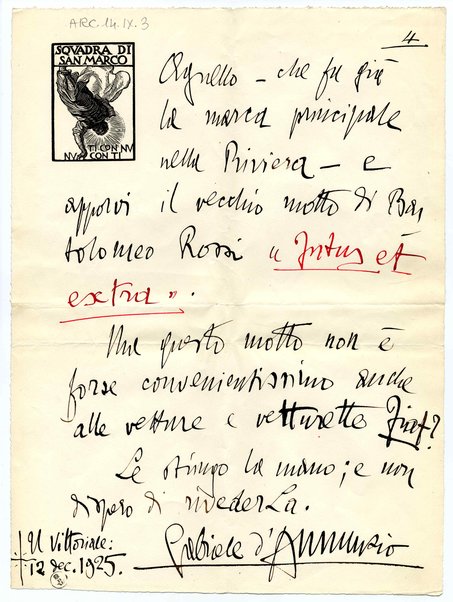 ARC. 14. IX. 3
4
SQVADRA DI
SAN MARCO
TI CON NV
NV CON TI
Agnello – che fu già
la marca principale
nella Riviera – e
apporvi il vecchio motto di Bar
tolomeo Rossi « Intus et
extra ».
Ma questo motto non è
forse convenientissimo anche
alle vetture e vetturette Fiat?
Le stringo la mano; e non
dispero di rivederLa.
Il Vittoriale: Gabriele d'Annunzio
12 dec. 1925.